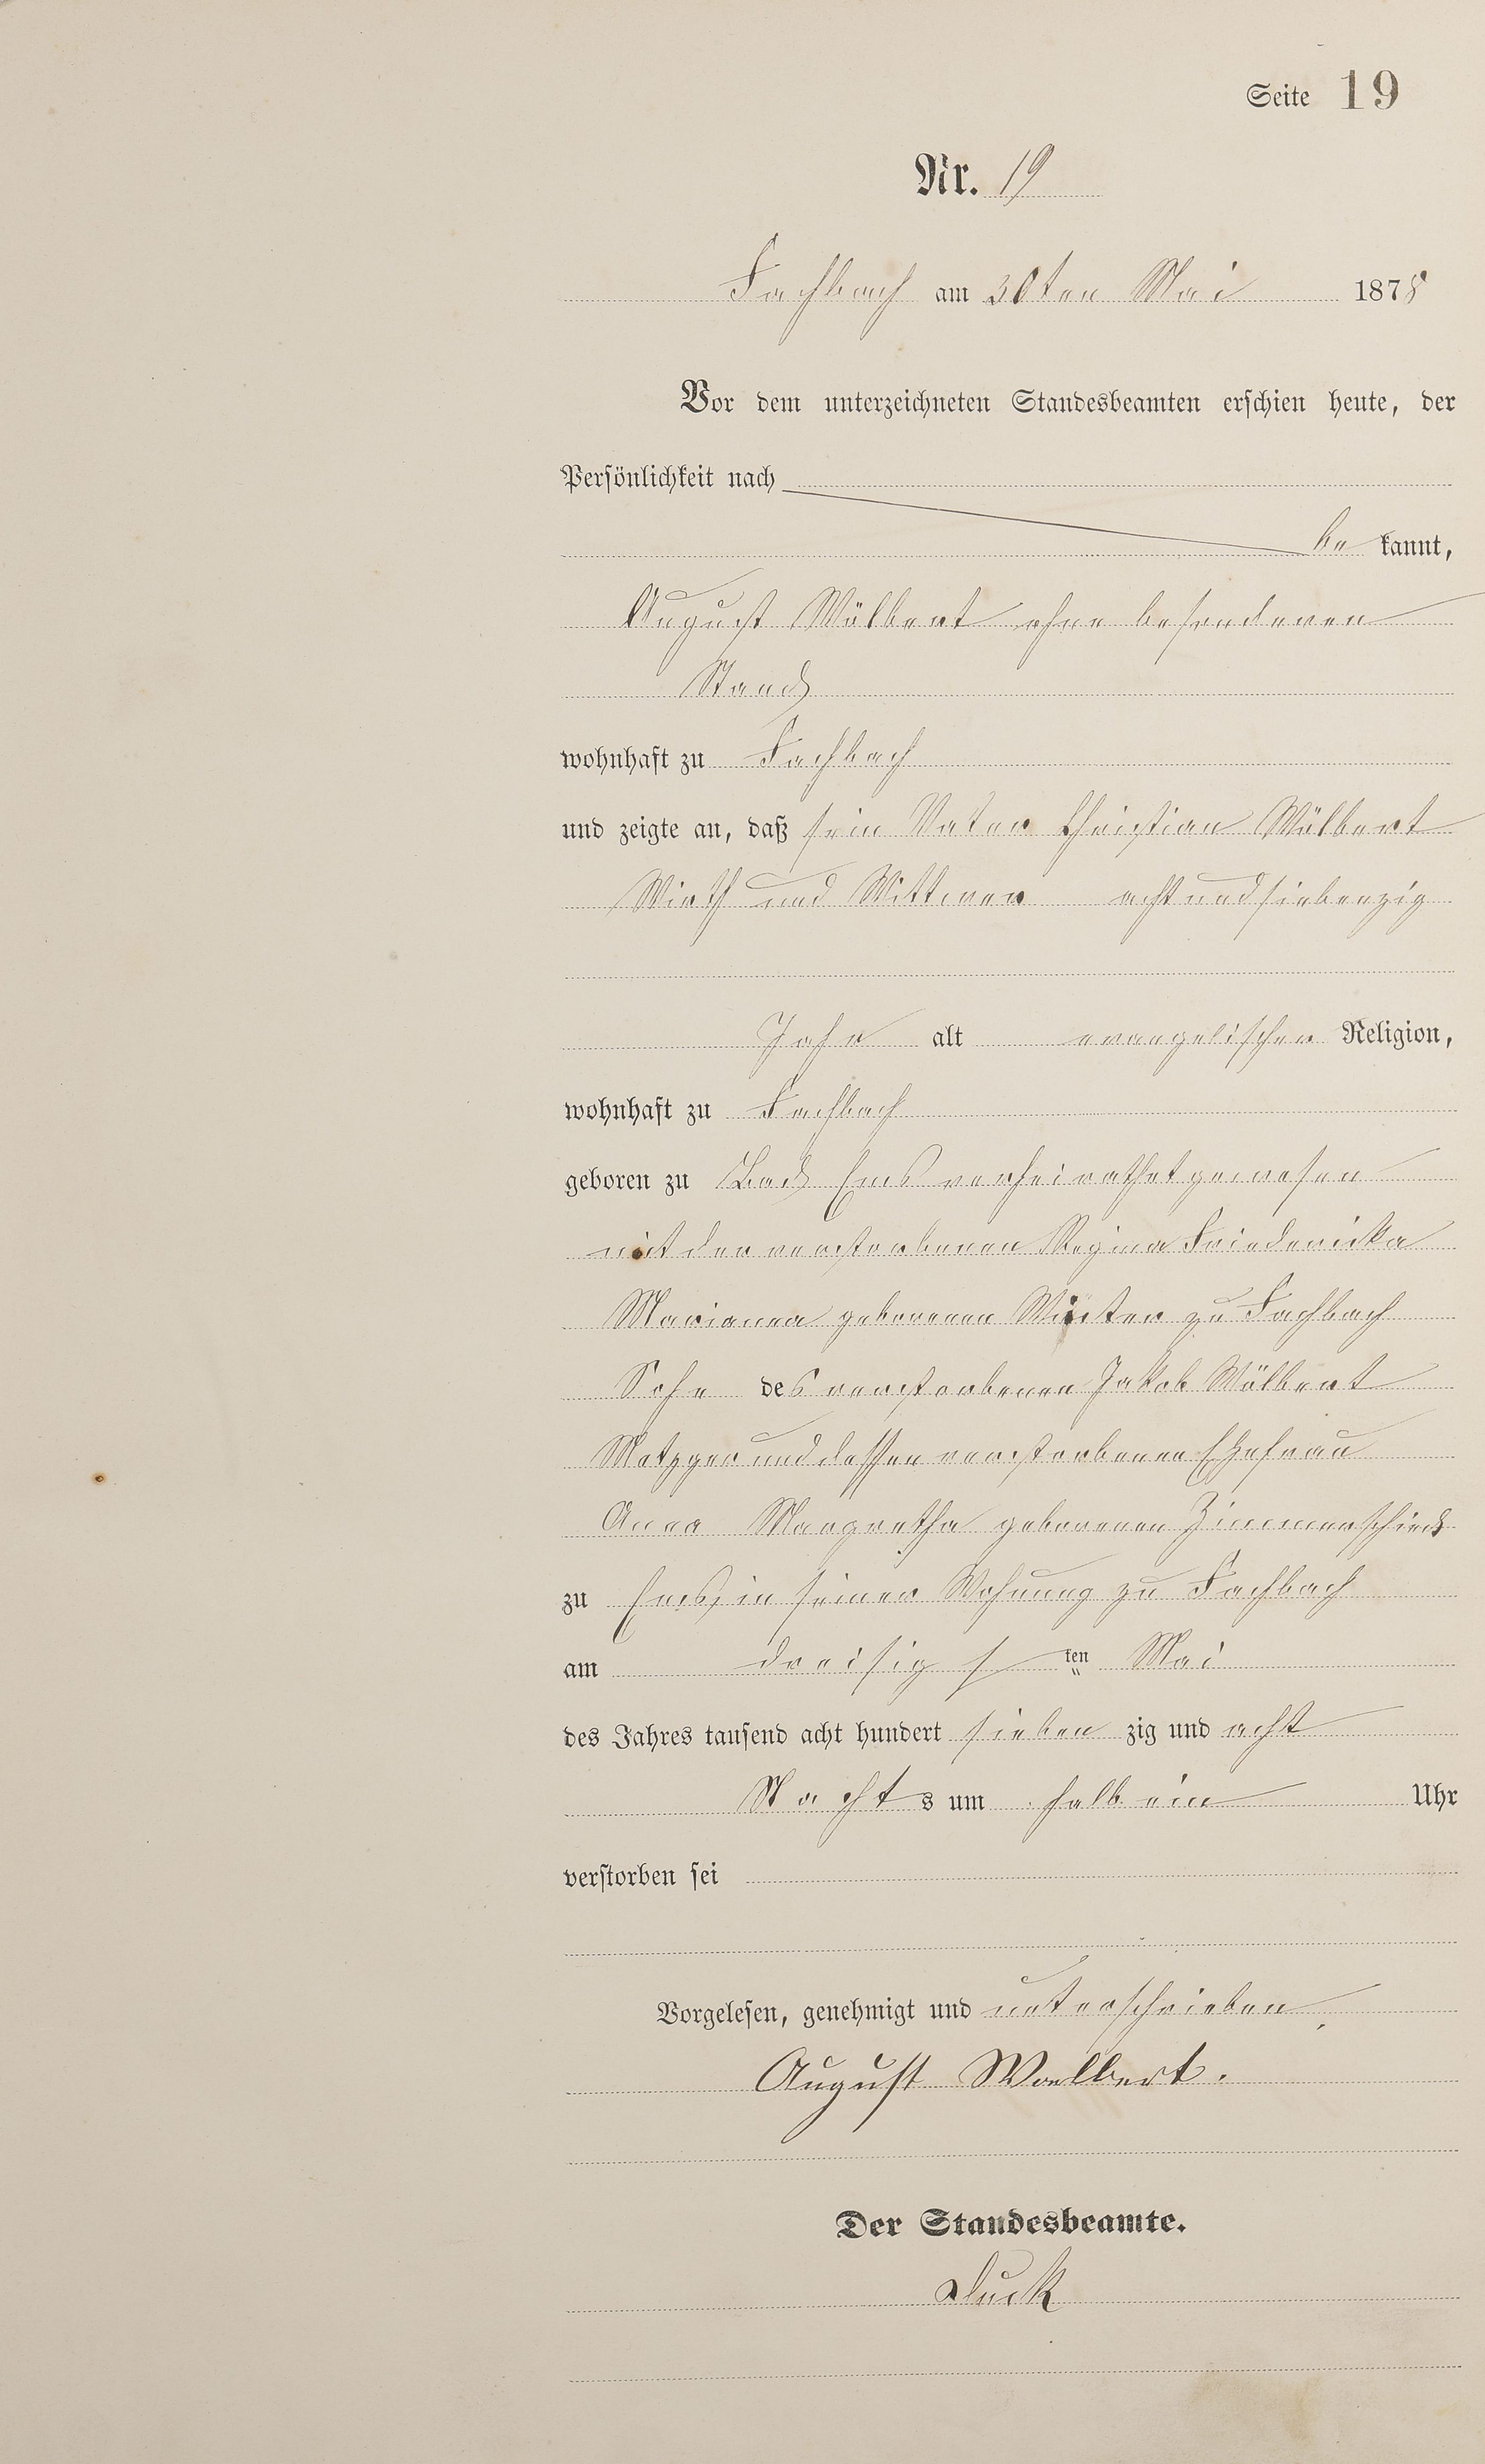 Seite 19
Nr. 19
Fachbach am 30ten Mai 1878
Vor dem unterzeichneten Standesbeamten erschien heute, der
Persönlichkeit nach
be kannt,
August Wölbert ohne besonderen
Stand
wohnhaft zu Fachbach
und zeigte an, daß sein Vater Christian Wölbert
Wirth und Wittwer achtundsiebenzig
Jahr alt evangelischer Religion,
wohnhaft zu Fachbach
geboren zu Bad Ems verheirathet gewesen
mit der verstorbenen Regina Friedericka
Marianna geborenen zu Fachbach
Sohn des verstorbenen Jakob Wölbert
Metzger und dessen verstorbenen Ehefrau
Anna Margretha geborenen Zimmerschied
zu Ems, in seiner Wohnung zu Fachbach
am dreisigs ten Mai
des Jahres tausend acht hundert sieben zig und acht
Nachts um halb ein Uhr
verstorben sei
Vorgelesen, genehmigt und unterschrieben
August Woelbert.
Der Standesbeamte.
Duck